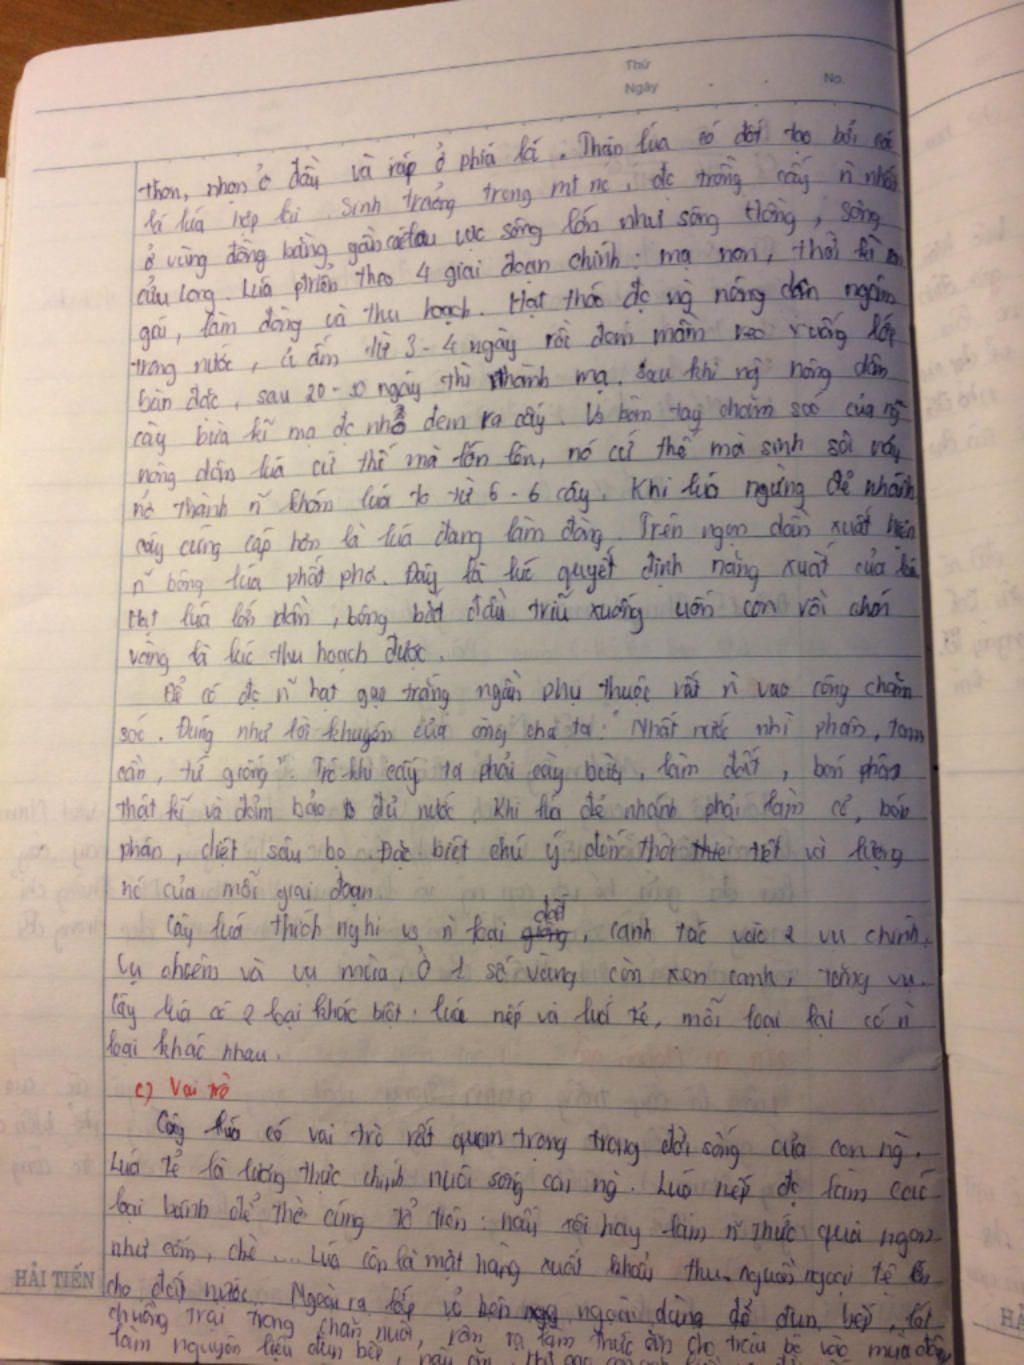 Thứ
Ngày No.
thon, nhọn ở đầu và ráp ở phía lá. Thân lúa có đốt tạo bởi các
lá lúa hợp lại. Sinh trưởng trong mt nc, đc trồng cấy n nhất
ở vùng đồng bằng gần các lưu vực sông lớn như sông Hồng, sông
cửu Long. Lúa ptriển theo 4 giai đoạn chính: mạ non, thời kì con
gái, làm đòng và thu hoạch. Hạt thóc đc ng nông dân ngâm
trong nước, ủ ấm từ 3-4 ngày rồi đem mầm reo xuống lớp
bùn đặc, sau 20-30 ngày thì thành mạ. Sau khi ng nông dân
cày bừa kĩ mạ đc nhổ đem ra cấy. Vs bàn tay chăm sóc của ng
nông dân lúa cứ thế mà lớn lên, nó cứ thế mà sinh sôi nảy
nở thành n~ khóm lúa to từ 5-6 cây. Khi lúa ngừng đẻ nhánh
cây cứng cáp hơn là lúa đang làm đòng. Trên ngọn dần xuất hiện
n~ bông lúa phất phơ. Đây là lúc quyết định năng xuất của lúa
Hạt lúa lớn dần, bông bắt đầu trĩu xuống uốn con rồi chín
vàng là lúc thu hoạch được.
Để có đc n~ hạt gạo trắng ngần phụ thuộc rất n vào công chăm
sóc. Đúng như lời khuyên của ông cha ta: "Nhất nước nhì phân, tam
cần, tứ giống". Trc khi cấy ta phải cày bừa, làm đất, bón phân
thật kĩ và đảm bảo đủ nước. Khi lúa đẻ nhánh phải làm cỏ, bón
phân, diệt sâu bọ. Đặc biệt chú ý đến thời tiết và lượng
nc của mỗi giai đoạn.
Cây lúa thích nghi vs n loại đất, canh tác vào 2 vụ chính:
vụ chiêm và vụ mùa. Ở 1 số vùng còn xen canh, tăng vụ.
Cây lúa có 2 loại khác biệt: lúa nếp và lúa tẻ, mỗi loại lại có n
loại khác nhau.
c) Vai trò
Cây lúa có vai trò rất quan trọng trong đời sống của con ng.
Lúa tẻ là lương thực chính nuôi sống con ng. Lúa nếp đc làm các
loại bánh để thờ cúng tổ tiên: nấu xôi hay làm n~ thức quà ngon
như cốm, chè ... Lúa còn là mặt hàng xuất khẩu thu nguồn ngoại tệ lớn
cho đất nước. Ngoài ra lớp vỏ bên ngoài dùng để đun bếp, lót
chuồng trại trong chăn nuôi, rơm rạ làm thức ăn cho trâu bò vào mùa đông
làm nguyên liệu đun bếp, nấu ăn,
HẢI TIẾN